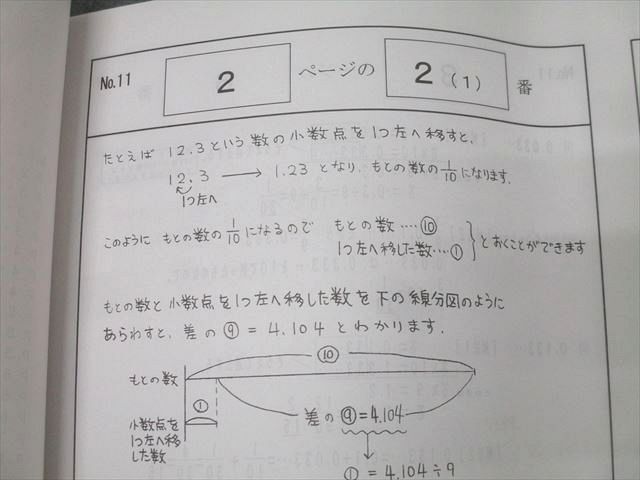 No.11 2 ページの 2 (1) 番
たとえば 12.3という数の小数点を1つ左へ移すと、
12.3 → 1.23 となり、もとの数の1/10になります。
1つ左へ
このように もとの数の1/10になるので もとの数…⑩
1つ左へ移した数…① とおくことができます
もとの数と小数点を1つ左へ移した数を下の線分図のように
あらわすと、差の⑨=4.104とわかります.
⑩
もとの数
①
差の⑨=4.104
小数点を
1つ左へ移
した数
①=4.104÷9